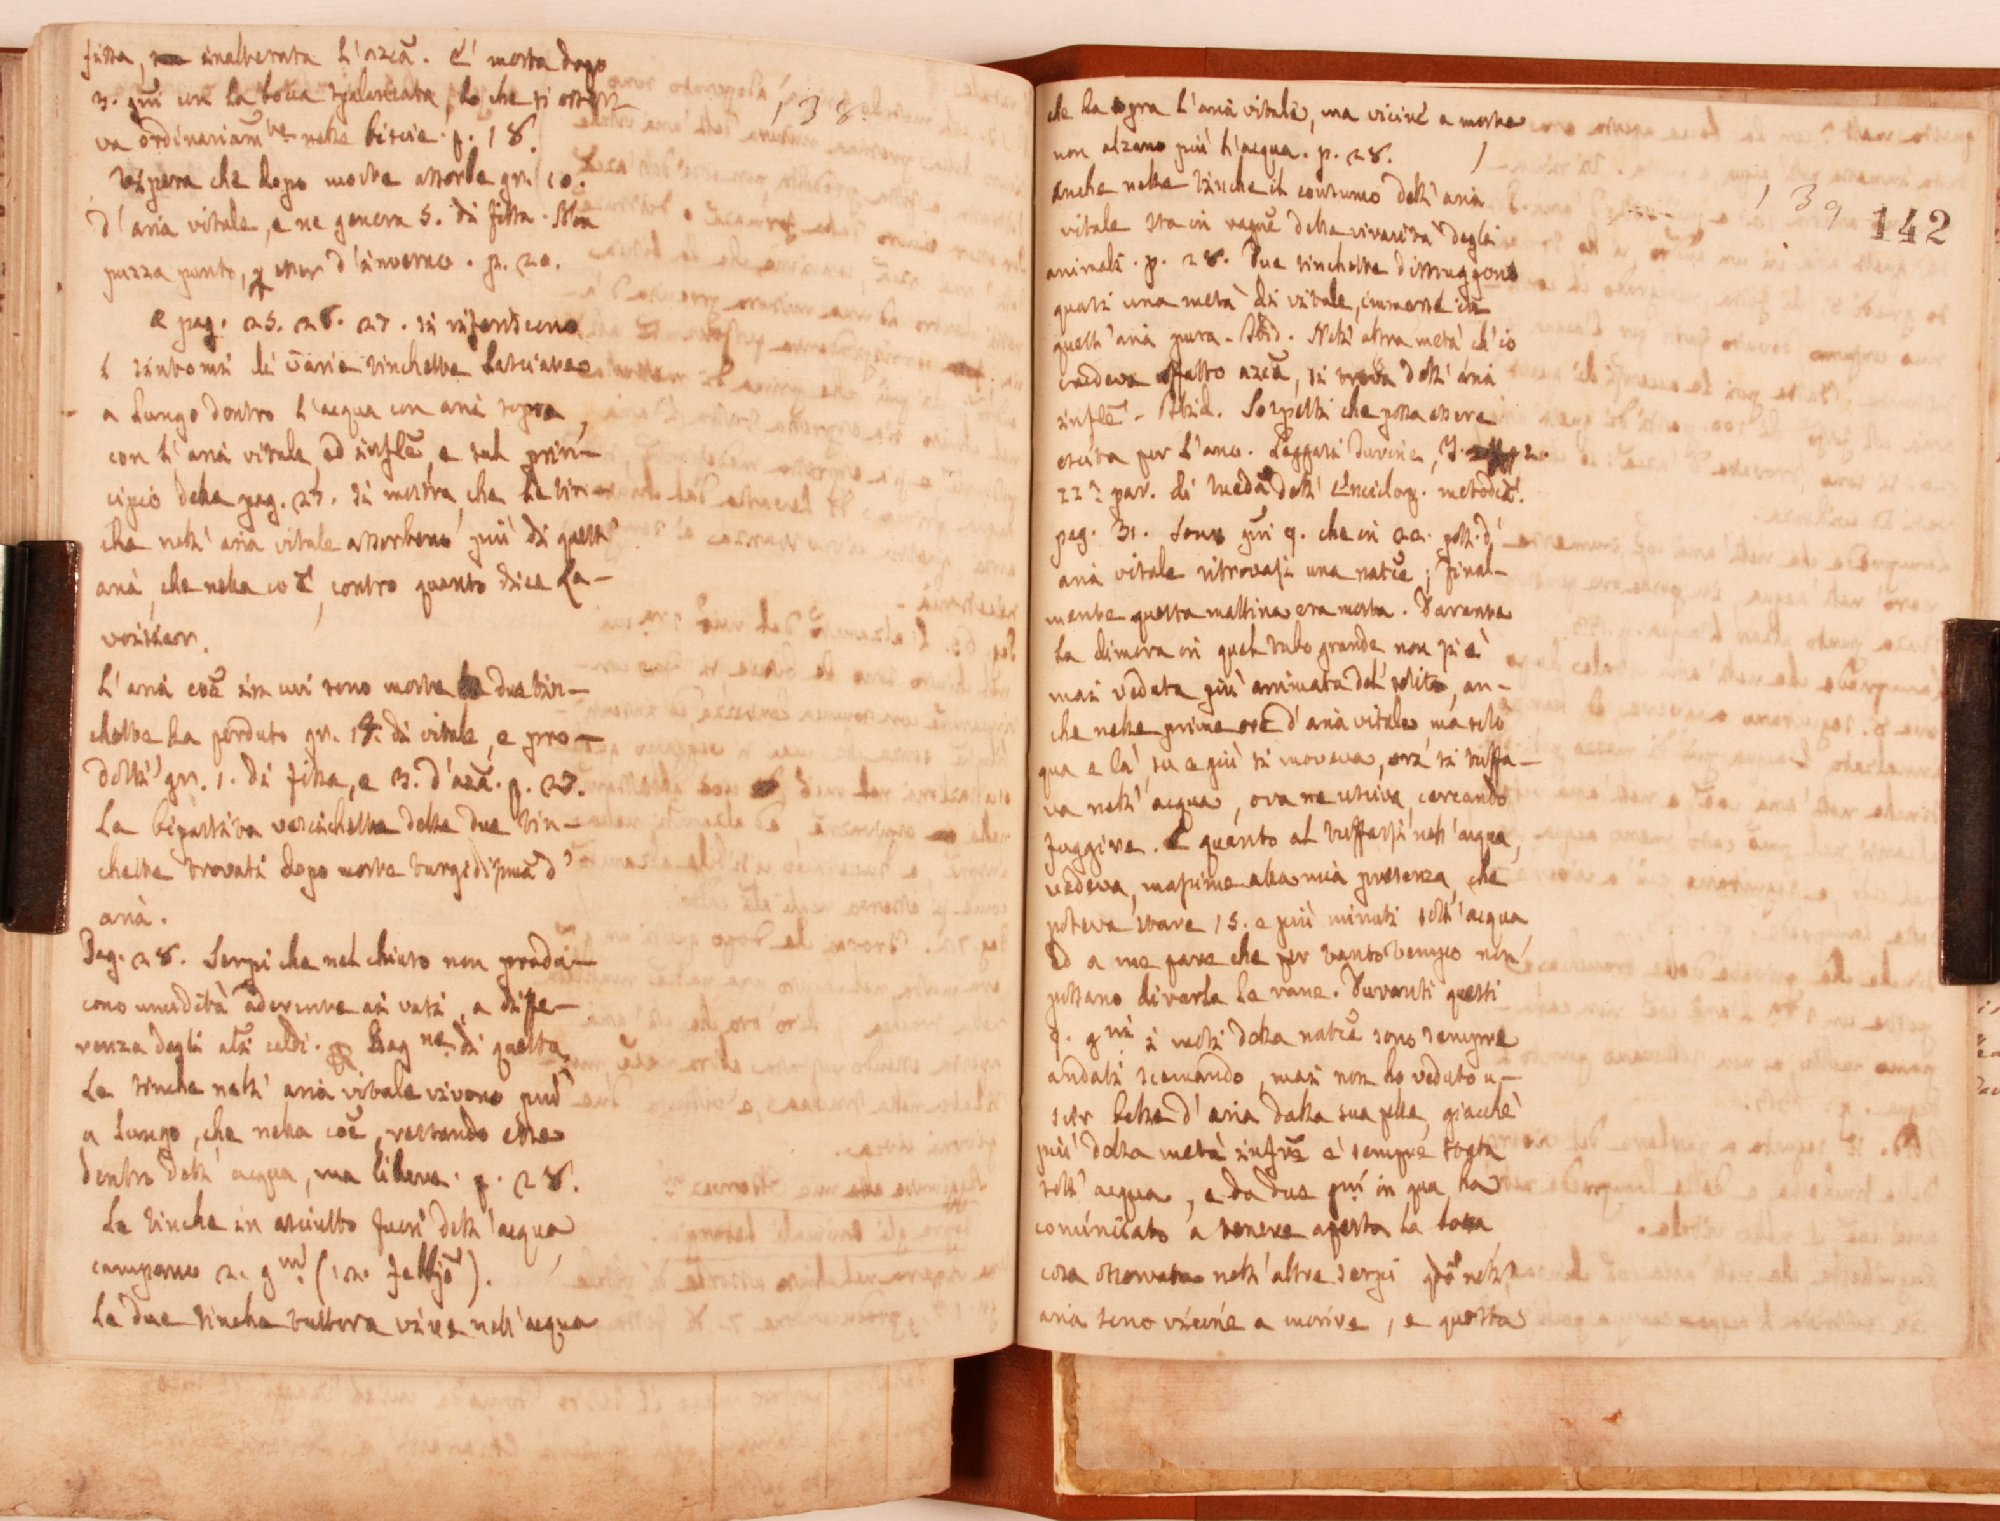 138.
fissa, inalterata l'azoã. È morta dopo
3. gni con la bocca spalancata, lo che si osser-
va ordinariamte nelle biscie. p. 18.
Vipera che dopo morte assorbe gr. 10.
d'aria vitale, e ne genera 5. di fissa. Non
puzza punto, p esser d'inverno. p. 20.
A pag. 25. 26. 27. si riferiscono
i sintomi di varie tinchette lasciate
a lungo dentro l'acqua con aria sopra,
con l'aria vitale, ed infle, e sul prin-
cipio della pag. 27. si mostra, che le tin-
che nell'aria vitale assorbono più di quest'
aria, che nella coe, contro quanto dice La-
voisier.
L'aria coe in cui sono morte le due tin-
chette ha perduto gr. 14. di vitale, e pro-
dotti gr. 1. di fissa, e 3. d'azã. p. 27.
La bipartita vescichetta delle due tin-
chette trovasi dopo morte turgidissima d'
aria.
Pag. 28. Serpi che nel chiuso non produ-
cono umidità aderente ai vasi, a diffe-
renza degli ali caldi. Ragne di questa.
Le tinche nell'aria vitale vivono più
a lungo, che nella coe, restando esse
dentro dell'acqua, ma libere. p. 28.
Le tinche in asciutto fuori dell'acqua
campano 2. gni (12. febbjo).
Le due tinche tuttora vive nell'acqua
139 142
che ha sopra l'aria vitale, ma vicine a morte
non alzano più l'acqua. p. 28.
Anche nelle tinche il consumo dell'aria
vitale sta in ragne della vivacità degli
animali. p. 28. Due tinchette distruggono
quasi una metà di vitale, immerse in
quest'aria pura. Ibid. Nell'altra metà ch'io
credeva affatto azoã, si trova dell'aria
infle. Ibid. Sospetti che possa essere
escita per l'ano. Leggasi Duvine, T. 2.
22? par. di Meda dell'Enciclop. metodica.
pag. 31. Sono gni 9. che in 20. poll. d'
aria vitale ritrovasi una natce; final-
mente questa mattina era morta. Durante
la dimora in quel tubo grande non si è
mai veduta più animata del solito, an-
che nelle prime ore d'aria vitale ma solo
qua e là, su e giù si moveva, ora si tuffa-
va nell'acqua, ora ne usciva, cercando
fuggire. E quanto al tuffarsi nell'acqua,
vedeva, massime alla mia presenza, che
poteva stare 15. e più minuti sott'acqua
Ed a me pare che per tanto tempo non
possano starla le rane. Duranti questi
9. gni i moti della natce sono sempre
andati scemando, mai non ho veduto u-
scir bolle d'aria dalla sua pelle, giacchè
più della metà infre è sempre stata
sott'acqua, e da due gni in qua ha
cominciato a tenere aperta la bocca
cosa osservata nell'altre serpi qdo nell'
aria sono vicine a morire, e questa